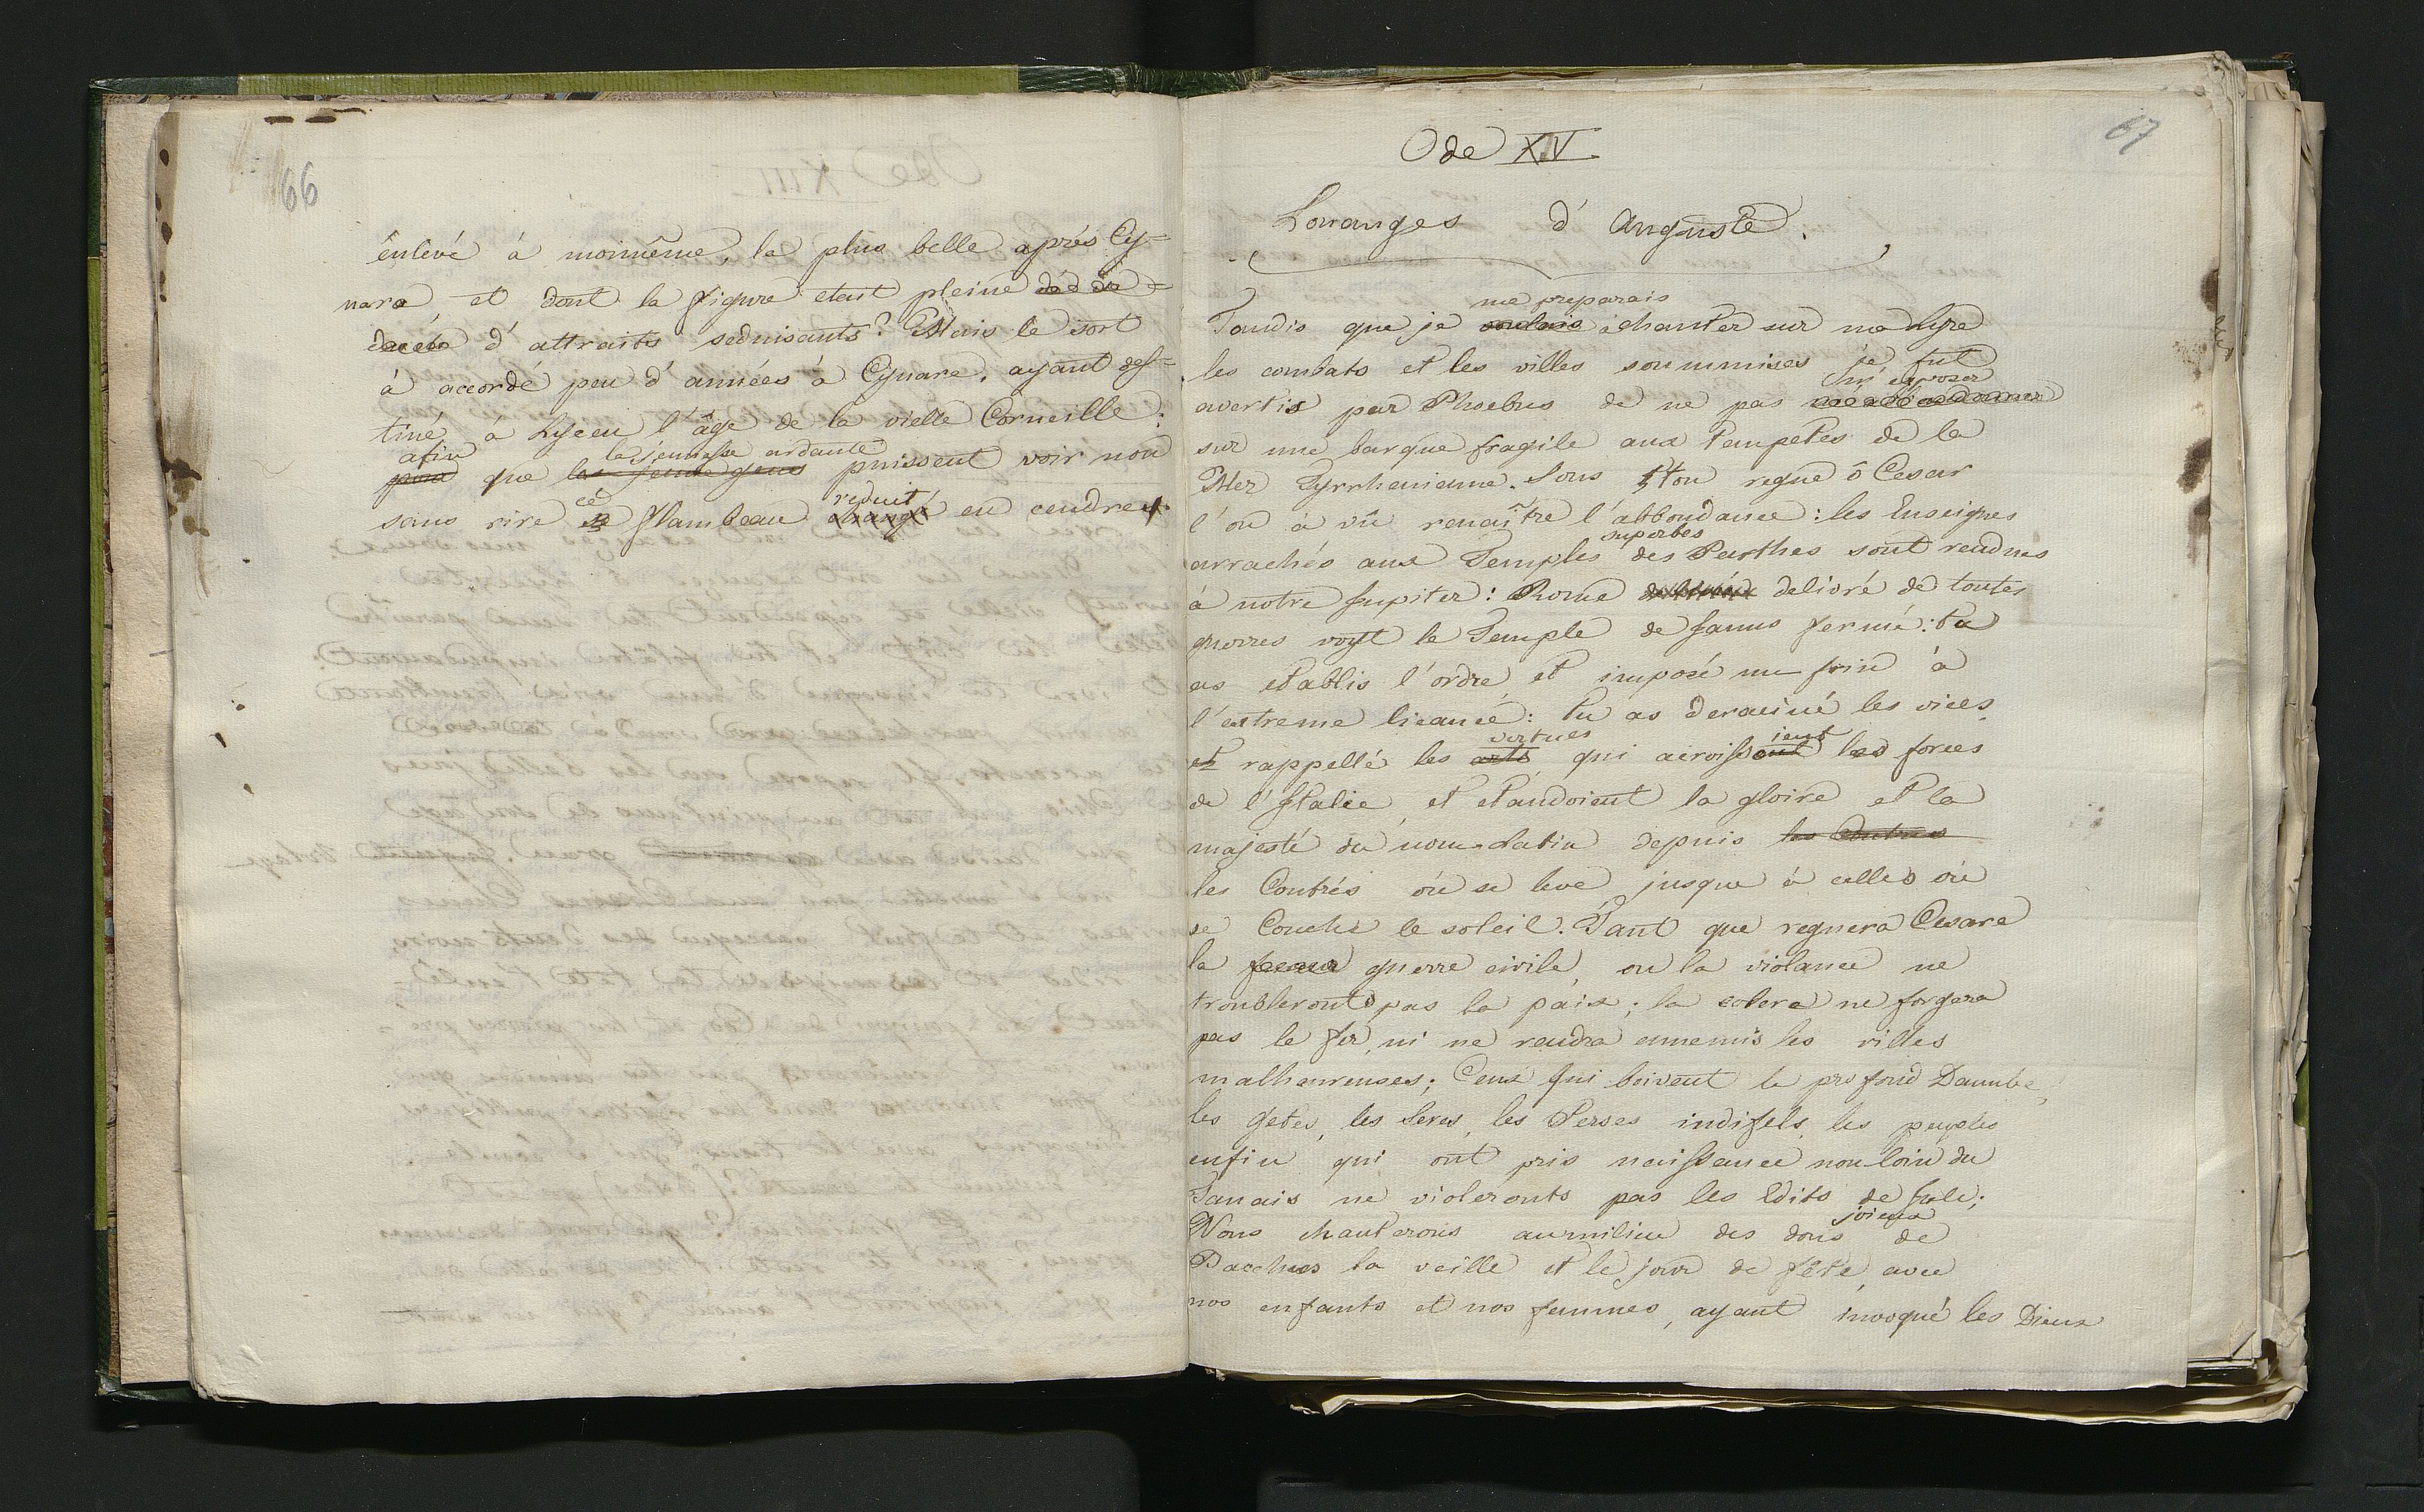 66
enlevé à moimême, la plus belle aprés Cy=
nara, et dont la figure etait pleine
d'attraits seduisants? Mais le sort
à accordé peu d'années à Cynare, ayant des=
tiné à Lyseu l'âge de la vielle Corneille:
afin la jeunesse ardante
pour que les jeune gens puissent voir non
cé reduit
sans rire flambeau changé en cendre
67
Ode XV
Louanges d'Auguste.
me preparais
Tandis que je voulais à chanter sur ma Lyre
les combats et les villes soummises je fut
m'exposer
avertis par Phoebus de ne pas m'abbandonner
sur une barque fragile aux tempetes de la
Mer Tyrrheniame. Sous ton regne ô Cesar
l'on à vû renaître l'abbondance: les Enseignes
superbes
arrachés aux Temples des Parthes sont rendues
à notre Jupiter: Rome delivré de toutes
guerres voyt le Temple de Janus fermé: tu
as etablis l'ordre et imposé un frin à
l'extreme licance: tu as deraciné les vices
virtues ient
et rappellé les arts qui acroissont les forces
de l'Italie, et etandoient la gloire et la
majesté du nom Latin depuis les Contres
les Contrés où se leve jusque à celles où
se Couche le soleil. Tant que regnera Cesare
la guerre civile ou la violance ne
troubleront pas la paix; la colere ne forgera
pas le fer, ni ne rendra ennemis les villes
malheureuses; Ceux qui boivent le profond Danube,
les Getes, les Seres, les Perses indifels, les peuples
enfin qui ont pris naissance non loin du
Tanais ne violeronts pas les Edits de Jule;
joieux
Nous chanterons aumilieu des dons de
Bacchus la veille et le jour de fête, avec
nos enfants et nos femmes, ayant invoqué les Dieux